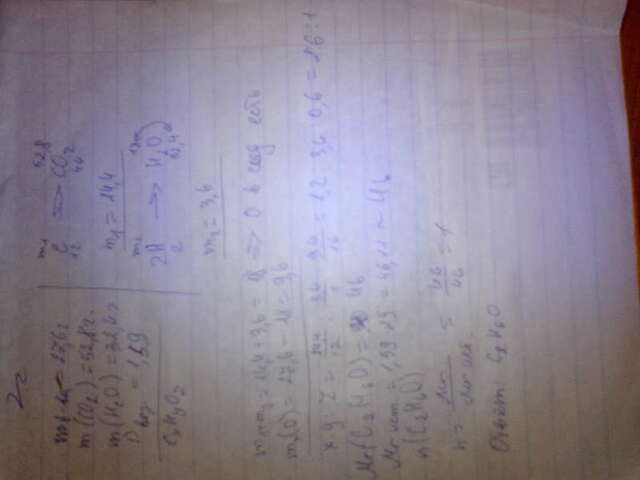 m в-ва = 27,6 г
m(CO2) = 52,8 г.
m(H2O) = 32,4 г
D воз = 1,59
CxHyOz
m1 52,8
C => CO2
12 44
m1 = 14,4
m2
2H => H2O
2 32,4
m2 = 3,6
m1+m2 = 14,4 + 3,6 = 18 => O в соед есть
m3(O) = 27,6 - 18 = 9,6
x:y:z = 14,4/12 : 3,6/1 : 9,6/16 = 1,2 : 3,6 : 0,6 = 2:6:1
Mr(C2H6O) = 46
Mr ист = 1,59 · 29 = 46,11 ~ 46
n(C2H6O)
n = Mr/Mr ист. = 46/46 = 1
Ответ: C2H6O